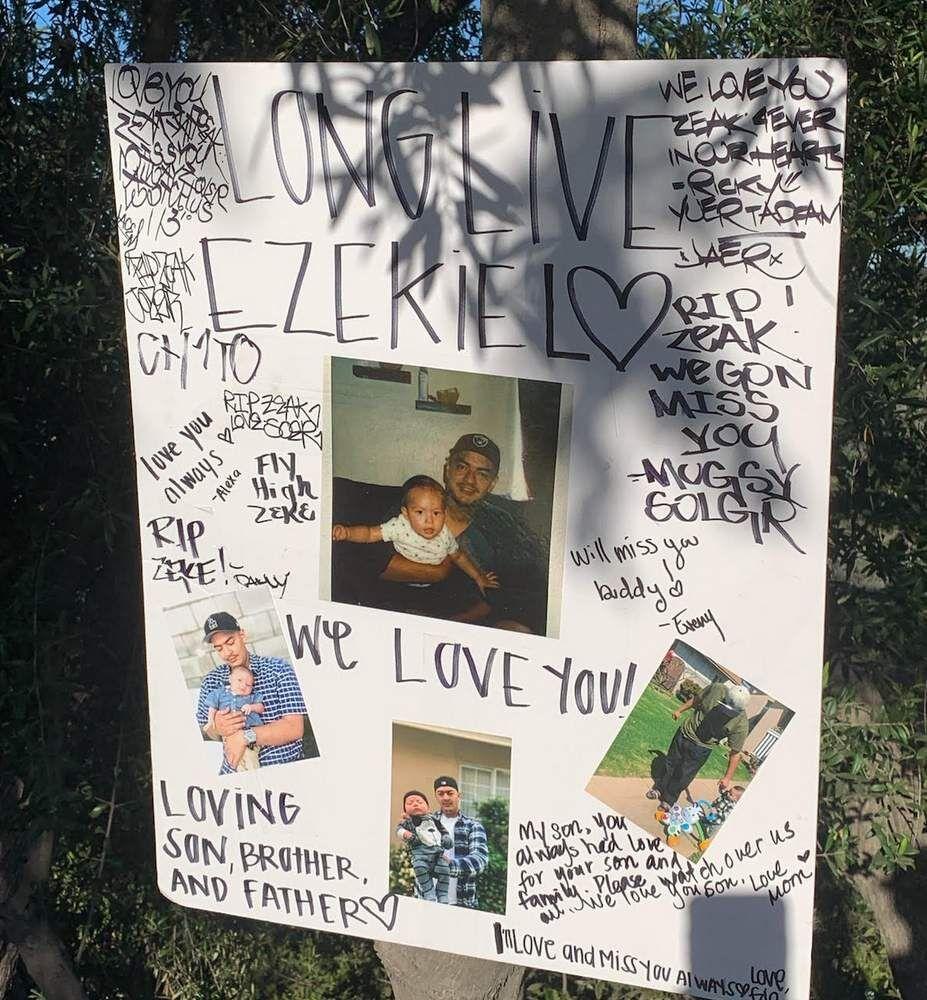 LONG LIVE
EZEKIEL♡
LOVE YOU
MISS YOU
CHITO
RIP ZEAK
LOVE
love you
always ♡
-Alexa
Fly
High
ZEKE
RIP
ZEKE!
WE LOVE YOU
ZEAK 4EVER
IN OUR HEARTS
-RICKY
JAER
RIP!
ZEAK
WE GON
MISS
YOU
-MUGSY
Will miss you
buddy!♡
WE LOVE YOU!
LOVING
SON, BROTHER,
AND FATHER♡
My son, you
always had love
for your son and
family. Please watch over us
all... We love you son. Love
Mom ♥
LOVE and MISS YOU AlWAYS
LOVE,